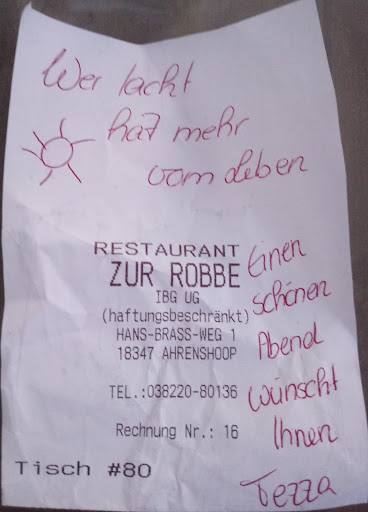 Wer lacht
hat mehr
vom Leben
RESTAURANT
ZUR ROBBE
IBG UG
(haftungsbeschränkt)
HANS-BRASS-WEG 1
18347 AHRENSHOOP
TEL.:038220-80136
Rechnung Nr.: 16
Tisch #80
Einen
schönen
Abend
wünscht
Ihnen
Tezza